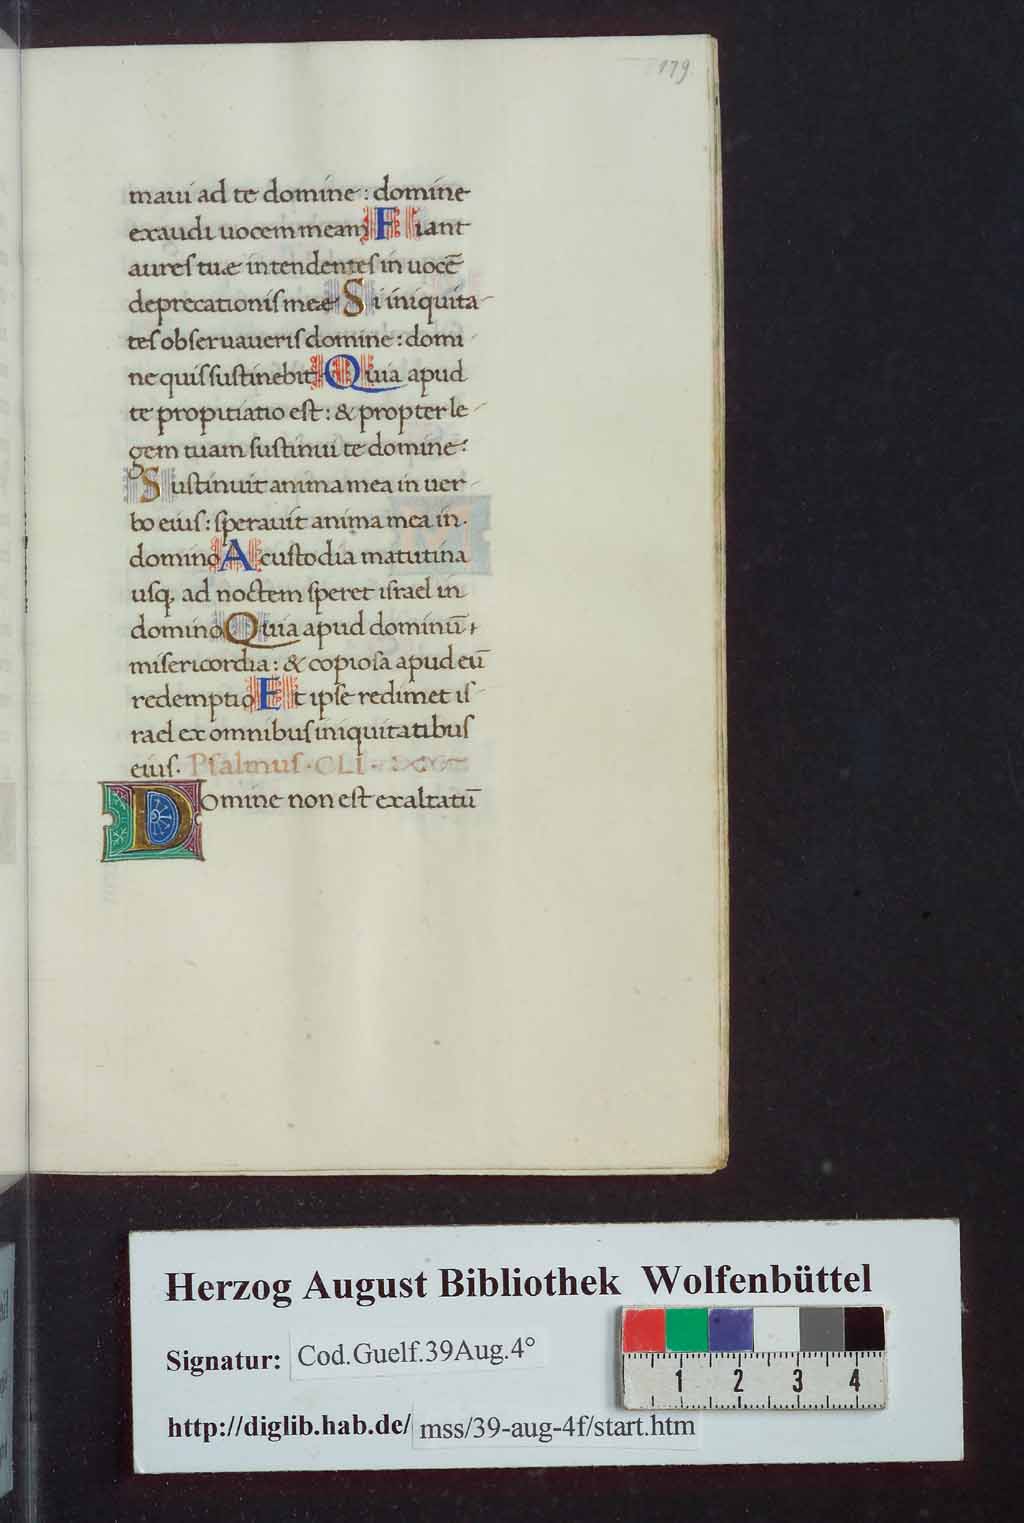 179
maui ad te domine : domine
exaudi uocem meam Fiant
aures tuæ intendentes in uocē
deprecationis meæ Si iniquita-
tes obseruaueris domine : domi-
ne quis sustinebit Quia apud
te propitiatio est : & propter le-
gem tuam sustinui te domine :
Sustinuit anima mea in uer-
bo eius : sperauit anima mea in.
domino A custodia matutina
usq. ad noctem speret israel in
domino Quia apud dominū.
misericordia : & copiosa apud eū
redemptio Et ipse redimet is-
rael ex omnibus iniquitatibus
eius. Psalmus . CLI .
Domine non est exaltatū
Herzog August Bibliothek Wolfenbüttel
Signatur: Cod.Guelf.39Aug.4°
1 2 3 4
http://diglib.hab.de/ mss/39-aug-4f/start.htm